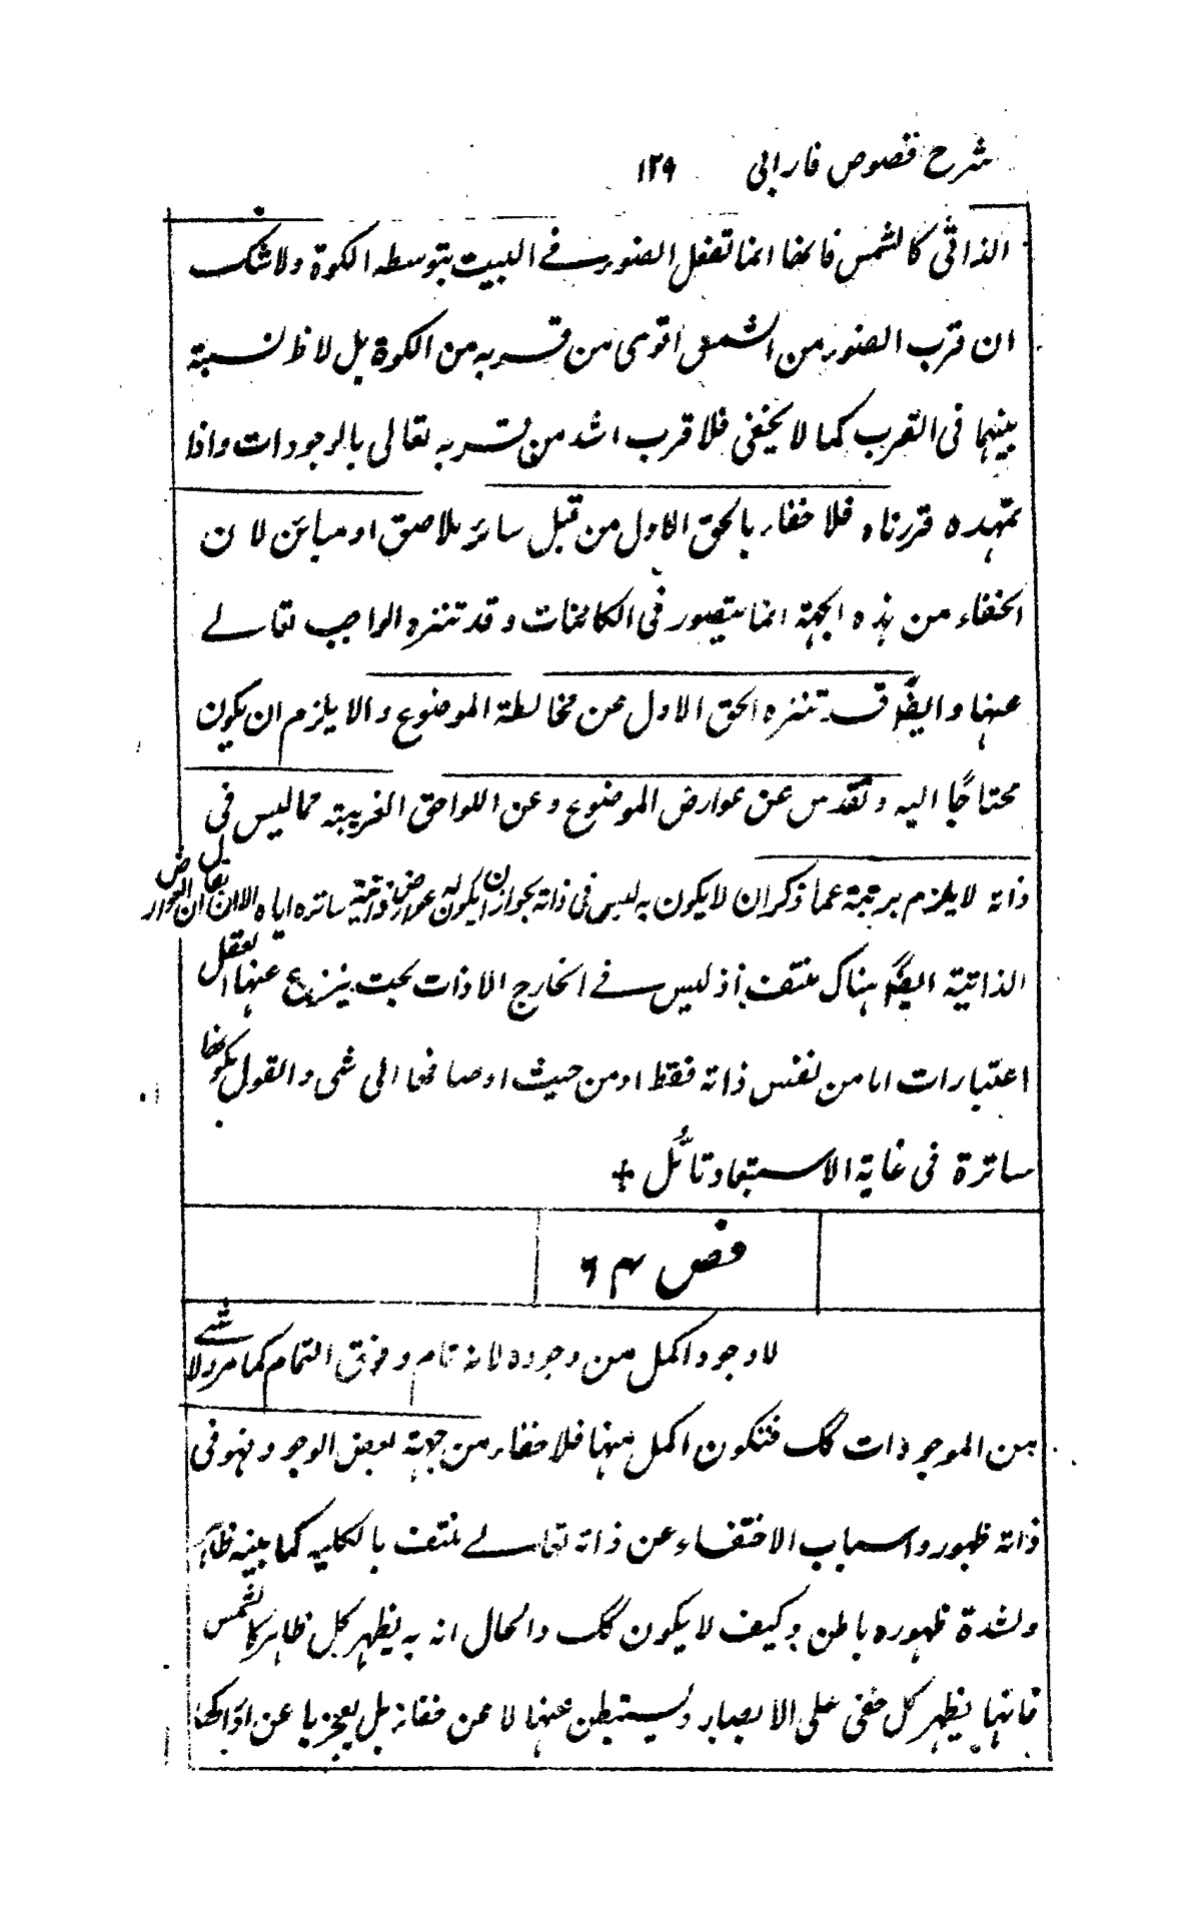 شرح فصوص فارابی ۱۲۹
الذاتی كالشمس فانها انما تفعل الضوء فے البيت بتوسطه الكوة ولا شك
ان قرب الضوء من الشمس اقوى من قربه من الكوة بل لا نسبة
بينهما فى القرب كما لا يخفى فلا قرب اشد من قربه تعالى بالوجودات واذا
تمهد ه قررناه فلا خفاء بالحق الاول من قبل ساتر ملاصق او مبائن لا ن
الخفاء من هذه الجهة انما يتصور فى الكائنات وقد تنزه الواجب تعالے
عنها وايضًا قد تنزه الحق الاول عن مخالطة الموضوع والا يلزم ان يكون
محتاجًا اليه وتقدس عن عوارض الموضوع وعن اللواحق الغريبة مما ليس فى
ذاته لا يلزم برتبة عما ذكر ان لا يكون به لبس فى ذاته بجواز ان يكون له عوارض ذاتية ساتره اياه الا ان يقال ان العوارض
الذاتية ايضًا هناك منتف اذ ليس فے الخارج الا ذات بحت ينزع عنها العقل
اعتبارات اما من نفس ذاته فقط او من حيث اوصافها الى شئ والقول بكونها
ساترة فى غاية الاستبعاد تأمل +
فص ۶۴
لا وجود اكمل من وجوده لانه تام و فوق التمام كما مر ولا شے
من الموجودات كك فتكون اكمل منها فلا خفاء من جهة نقص الوجود فهو فى
ذاته ظهور واسباب الاختفاء عن ذاته تعالے منتف بالكليه كما بينه ظاهر
ولشدة ظهوره باطن وكيف لا يكون كك والحال انه به يظهر كل ظاهر كالشمس
فانها يظهر كل خفى على الابصار وليستبطن عنها لا عن خفائه بل بعجزها عن ادراكها